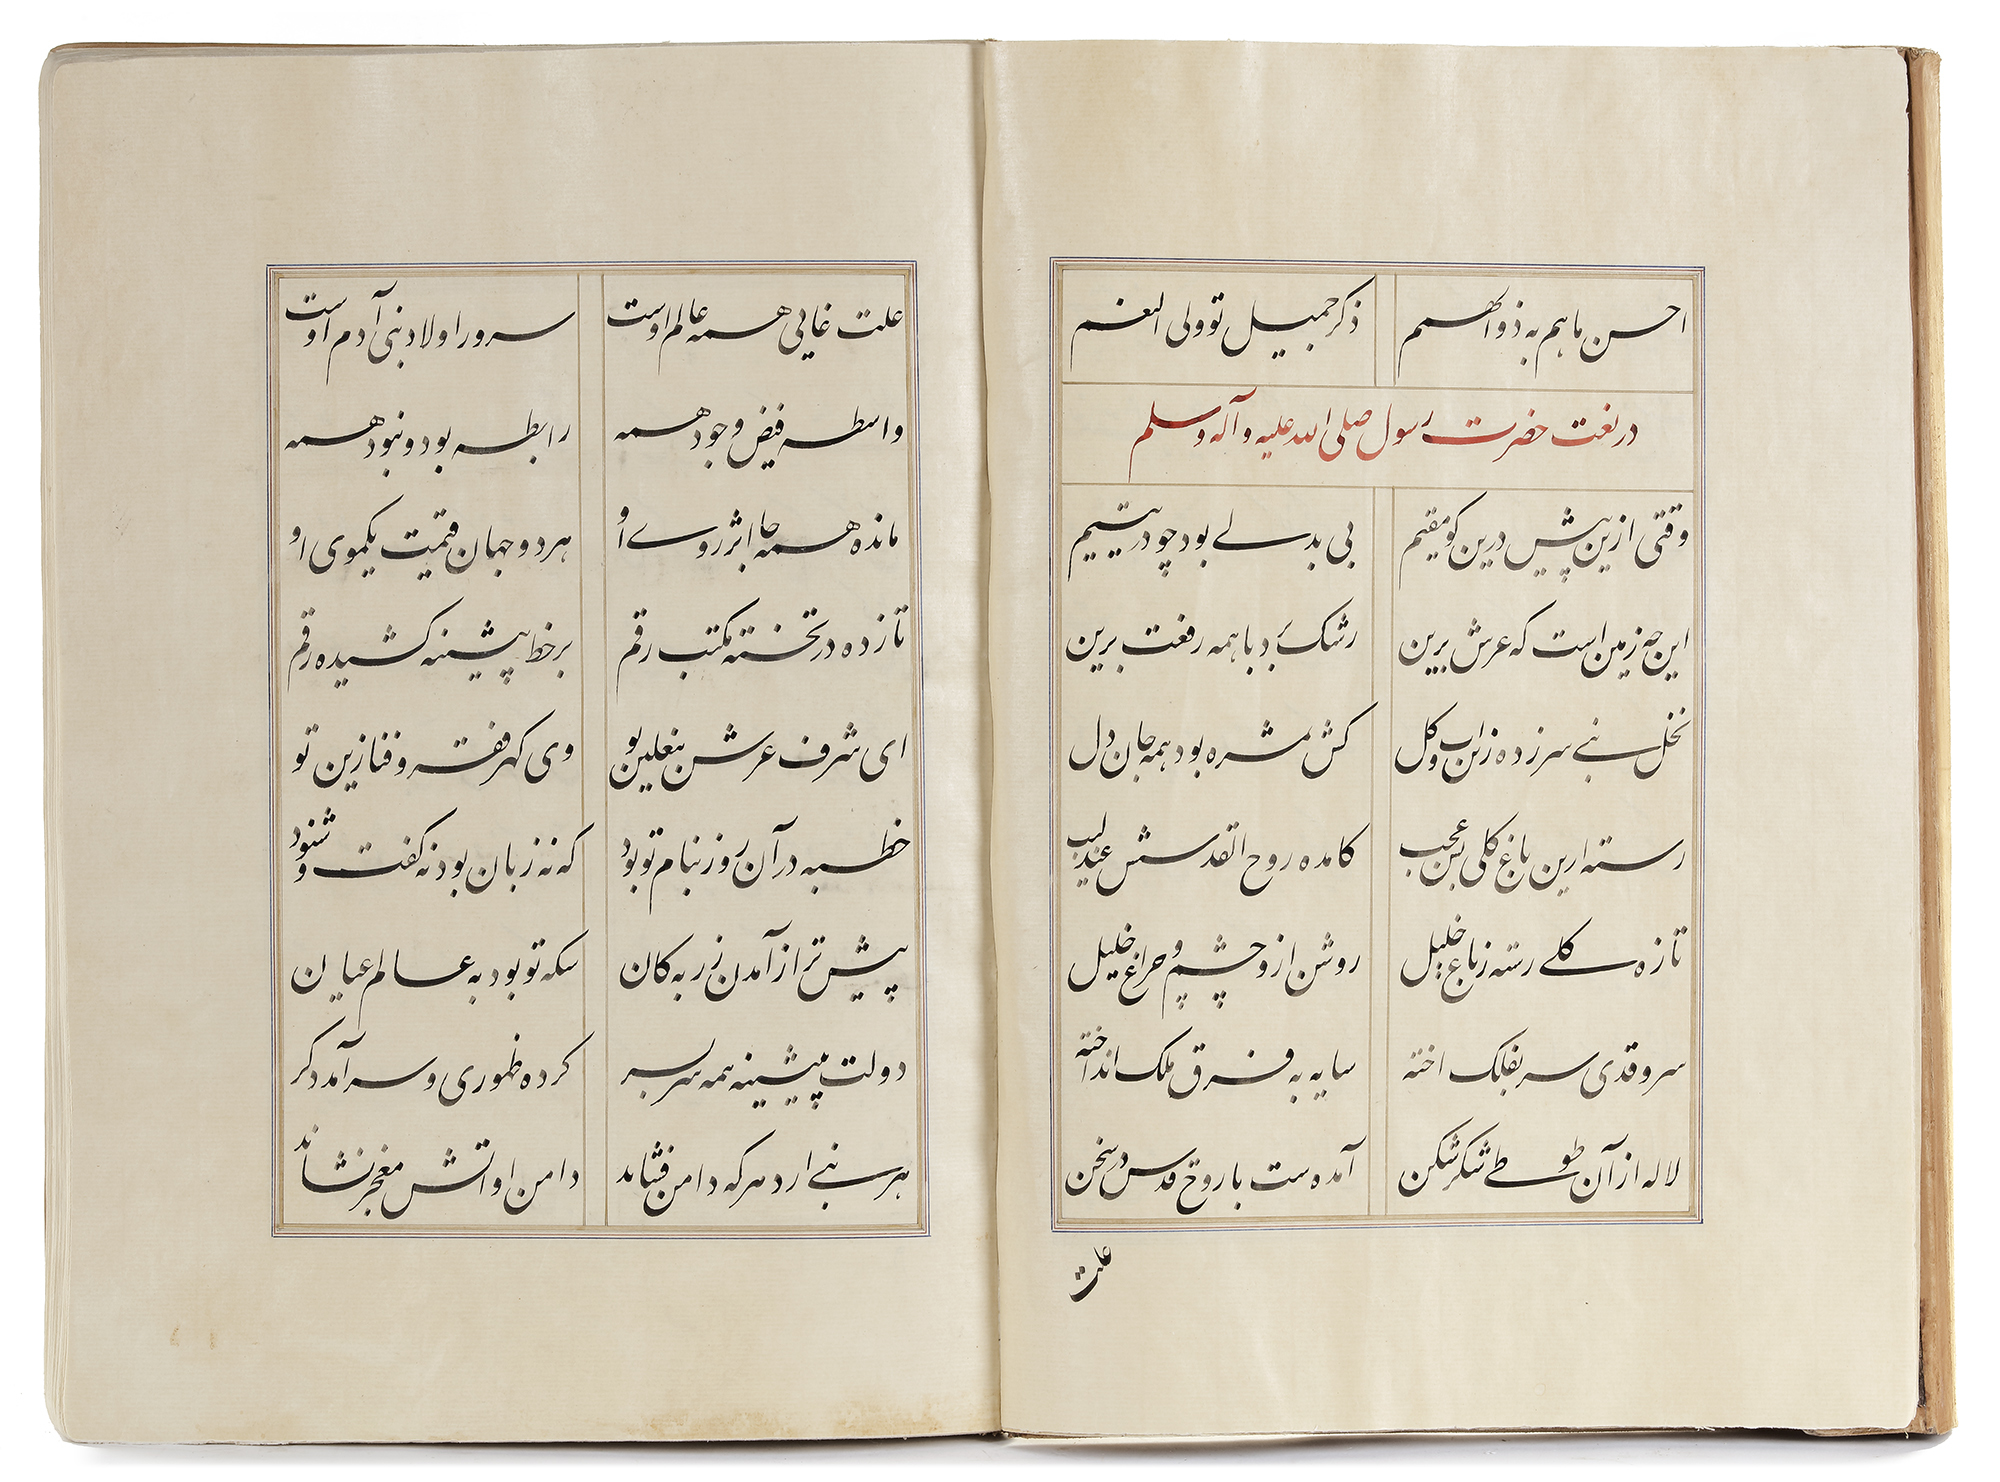 احسن ماهم به ذوالهمم ذکر جمیل تو ولی النعم
در نعت حضرت رسول صلی الله علیه و آله وسلم
وقتی ازین پیش درین کو مقیم بی بدلے بود چو در یتیم
این چه زمین است که عرش برین رشک برد با همه رفعت برین
نخل نبے سر زده زاین آب وکل کش ثمره بود همه جان دل
رسته ازین باغ کلی بس عجب کامده روح القدسش عندلیب
تازه کلے رسته ز باغ خلیل روشن ازو چشم و چراغ خلیل
سرو قدی سر بفلک اخته سایه به فرق ملک انداخته
لاله از آن طوطے شکر شکن آمده ست با روح قدس در سخن
علت
علت غایی همه عالم اوست سرور اولاد بنی آدم اوست
واسطه فیض وجود همه رابطه بود و نبود همه
مانده همه جا اثر روے او هر دو جهان قیمت یکموی او
تا زده در تخته مکتب رقم بر خط پیشینه کشیده رقم
ای شرف عرش بنعلین تو وی کهر فقر و فنا زین تو
خطبه در آن روز بنام تو بود که نه زبان بود نه کفت و شنود
پیش تر از آمدن زر به کان سکه تو بود به عالم عیان
دولت پیشینه همه سربسر کرده ظهوری و سرآمد دکر
هر نبے ار در هر که دامن فشاند دامن او آتش نشاند